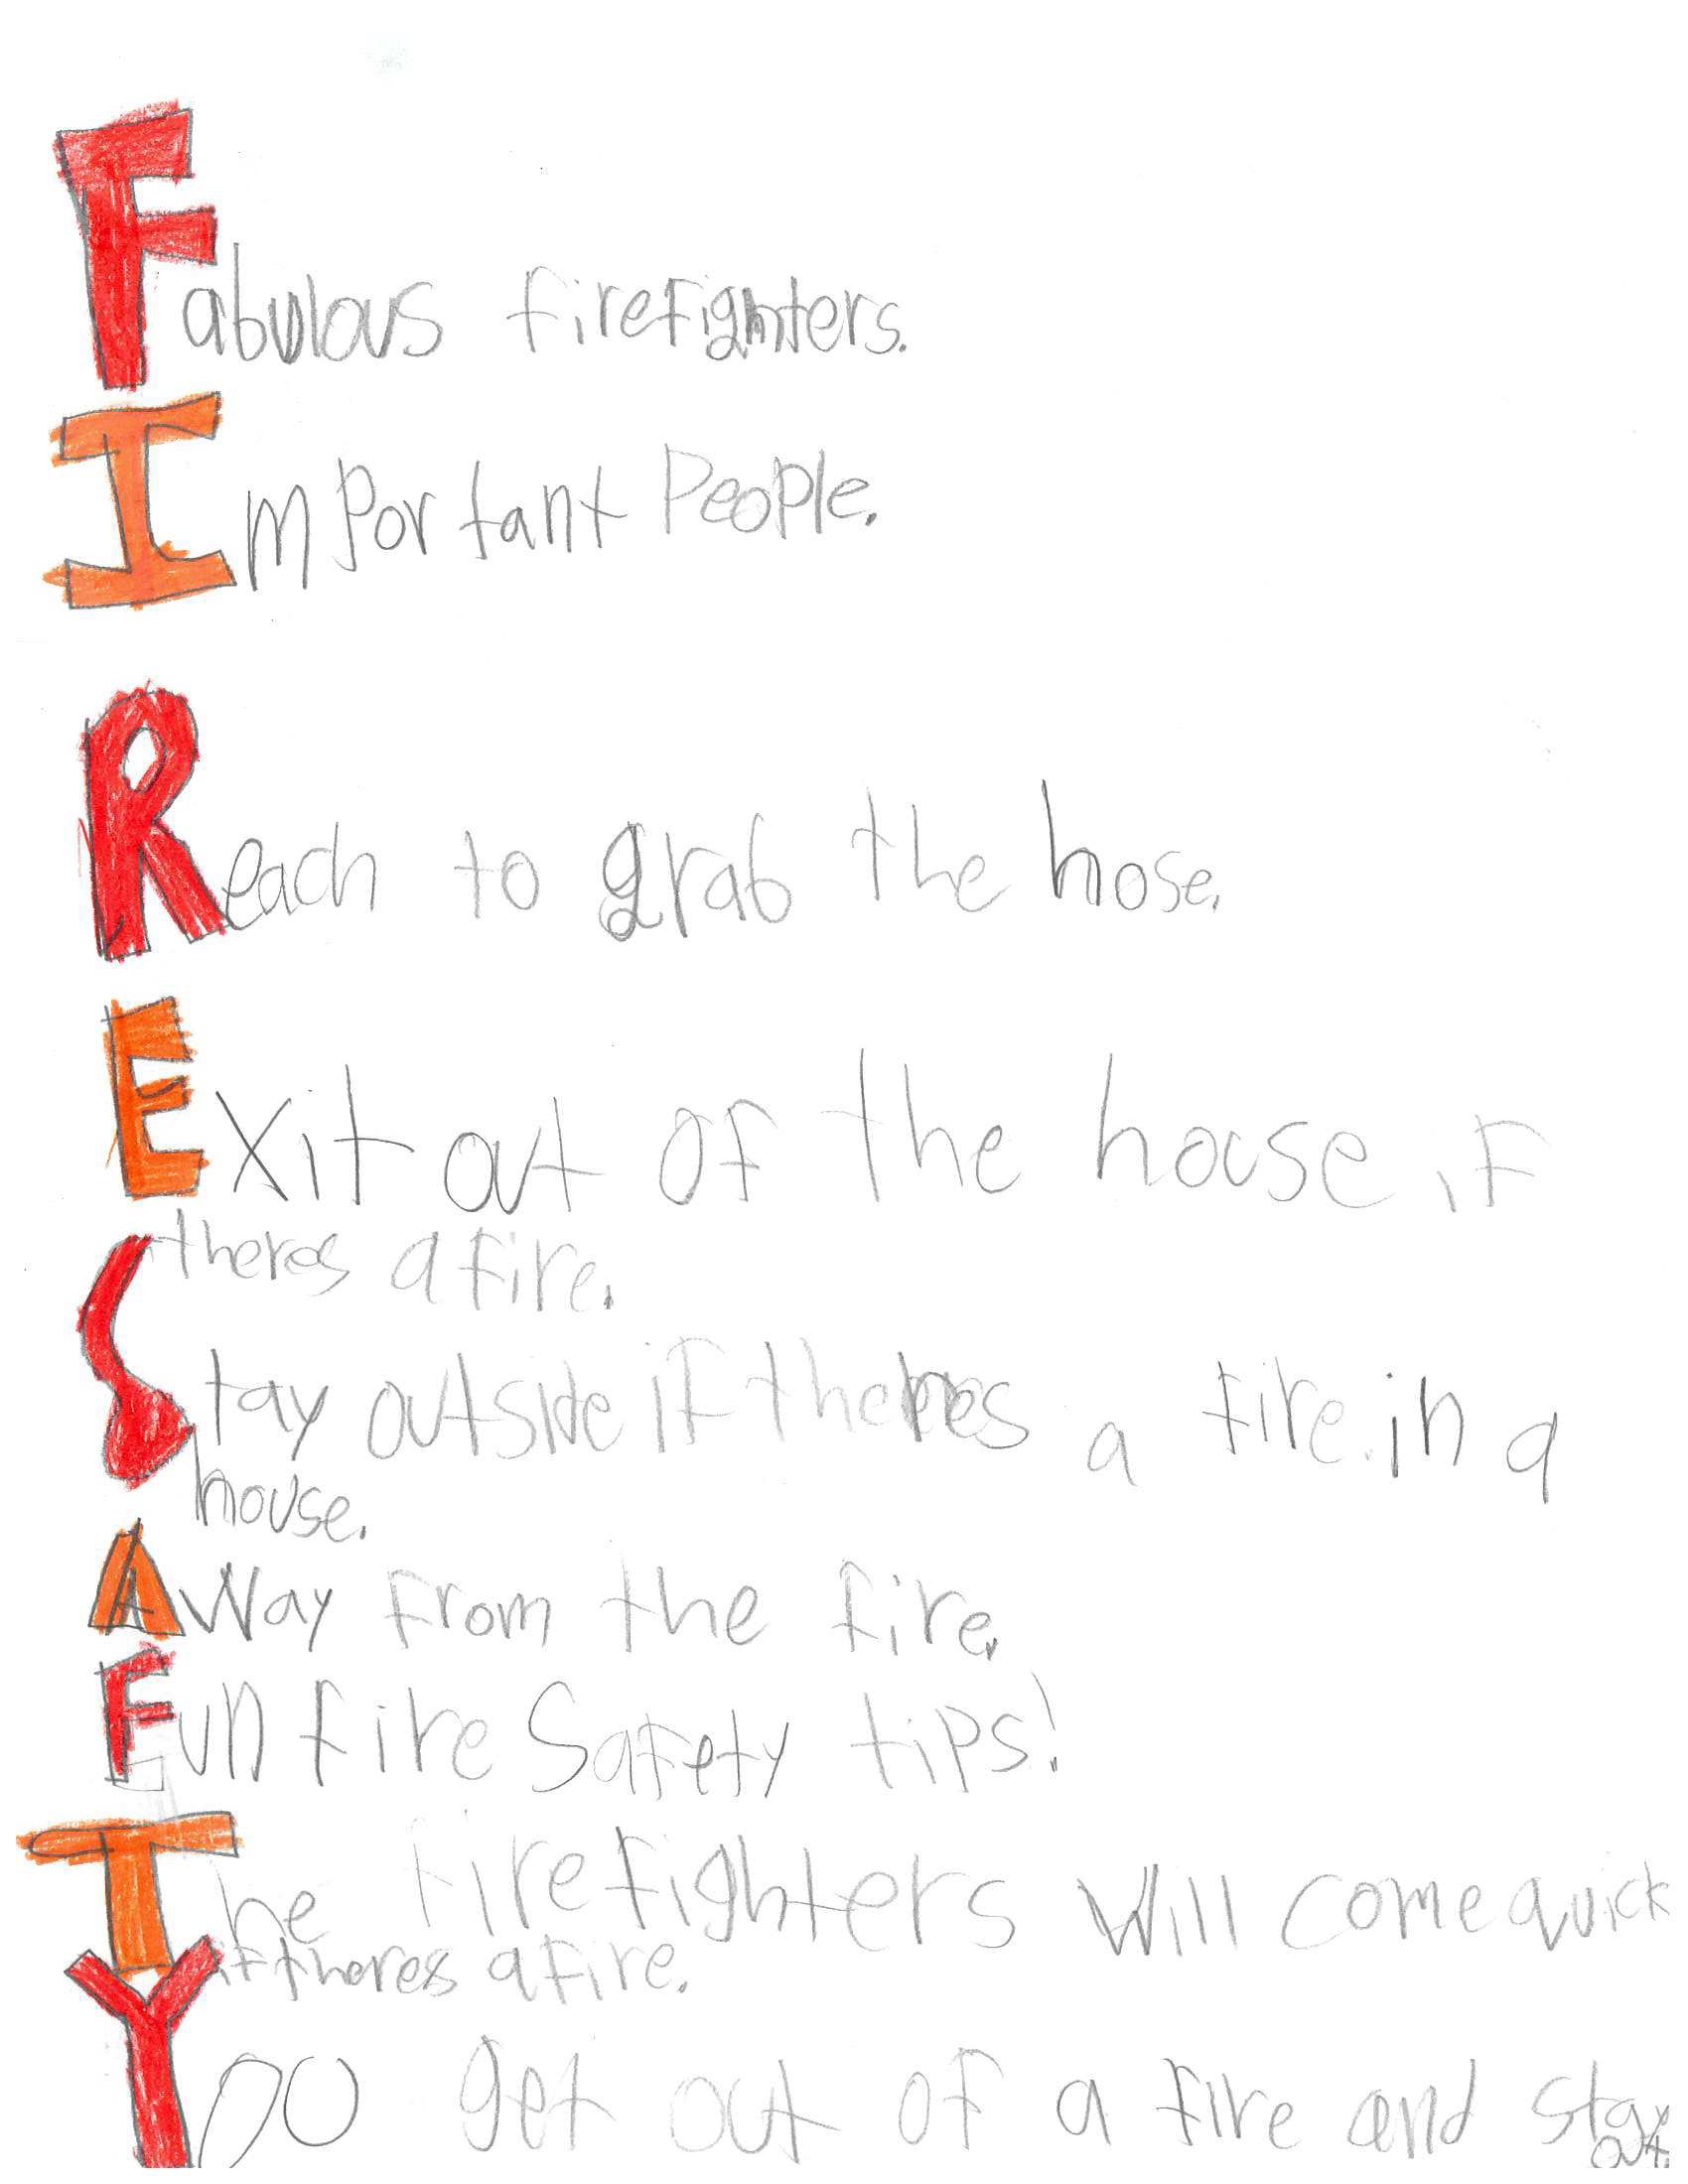 Fabulous firefighters.
Important People.
Reach to grab the hose.
Exit out of the house if
theres a fire.
Stay outside if theres a fire in a
house.
Away from the fire.
Fun fire Safety tips!
The firefighters will come quick
if theres a fire.
You get out of a fire and stay
out.